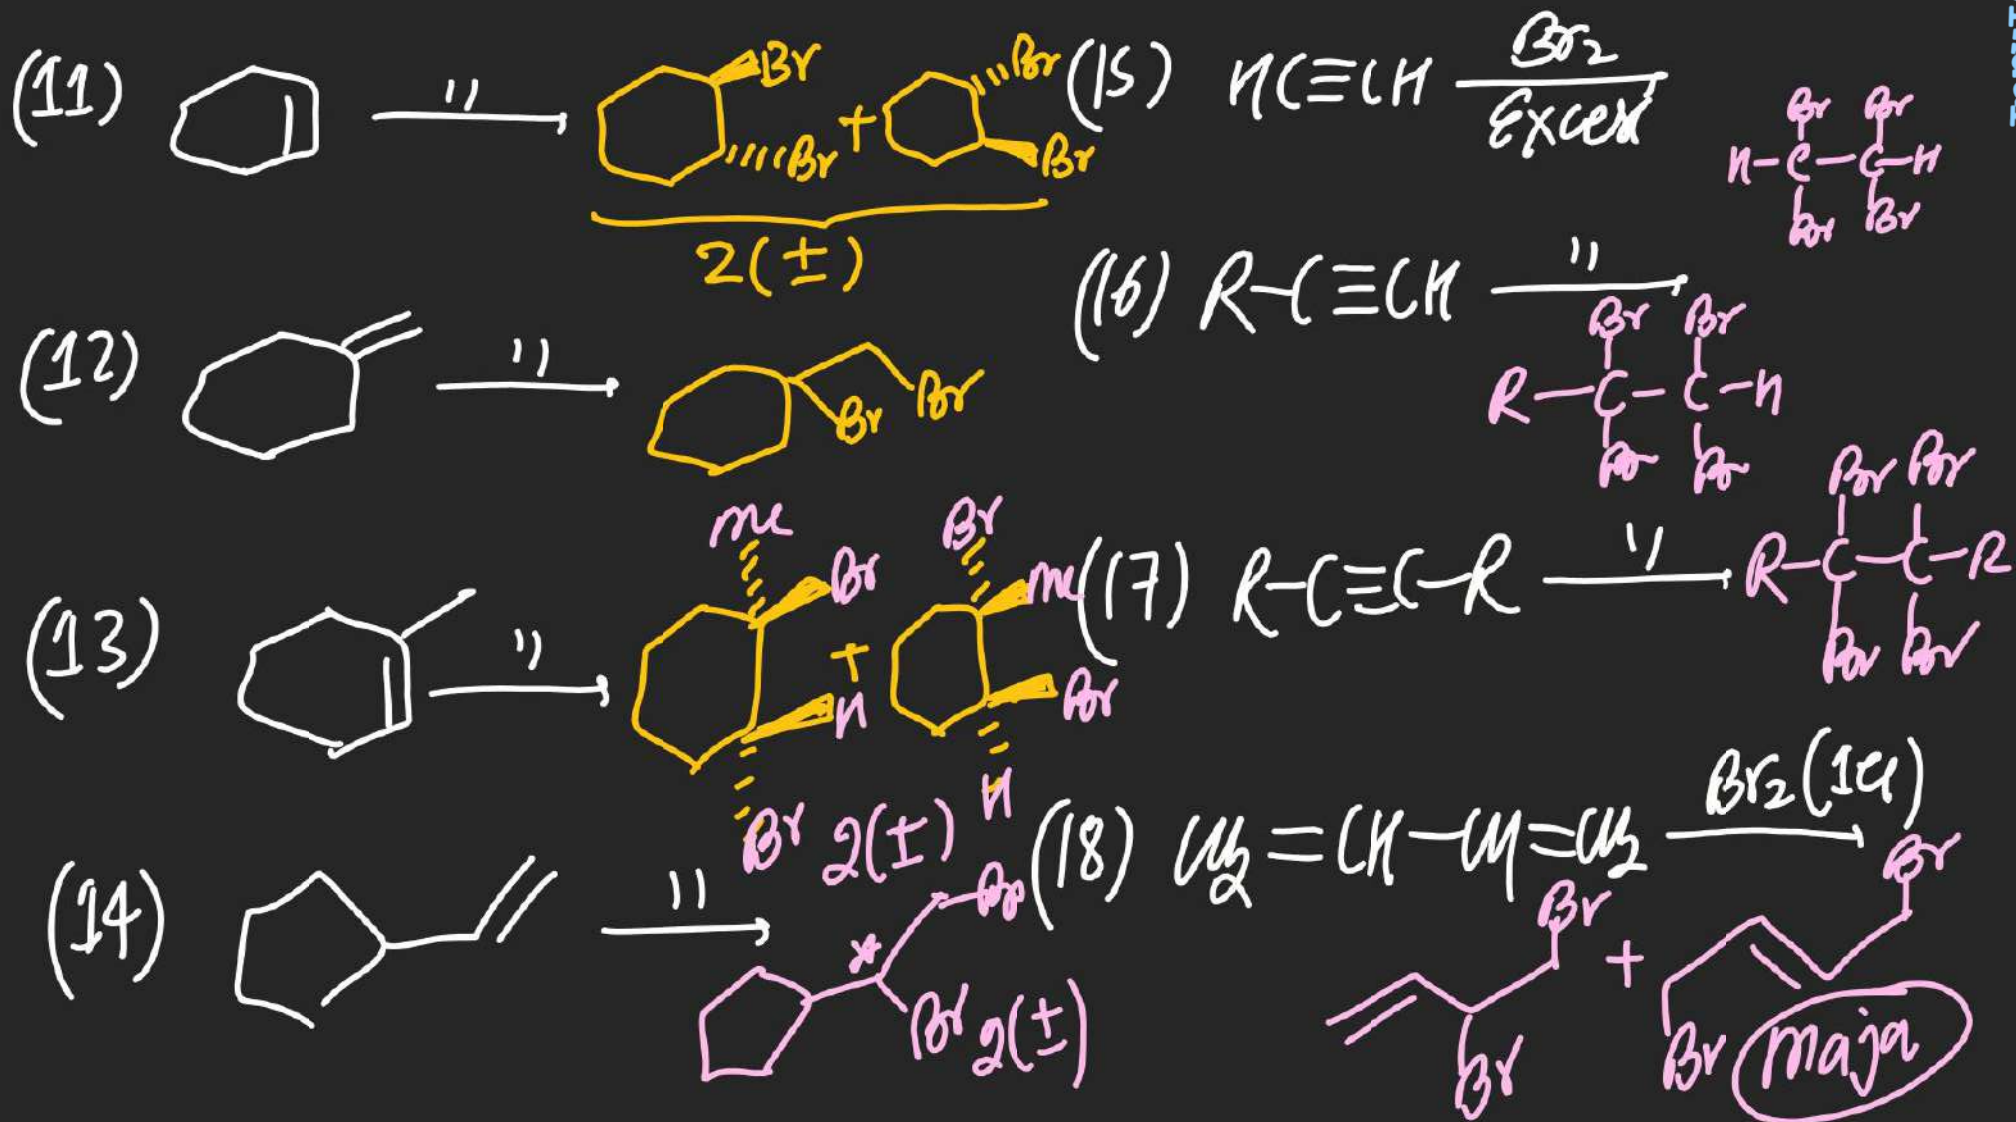 (11) '' Br Br + Br Br
2(±)
(12) '' Br Br
(13) '' Me Br H Br + Br Me Br H
2(±)
(14) '' * Br Br 2(±)
(15) HC≡CH Br2
Excess
Br Br
H-C-C-H
Br Br
(16) R-C≡CH ''
Br Br
R-C-C-H
Br Br
(17) R-C≡C-R ''
Br Br
R-C-C-R
Br Br
(18) CH2=CH-CH=CH2 Br2(1eq)
Br Br + Br Br